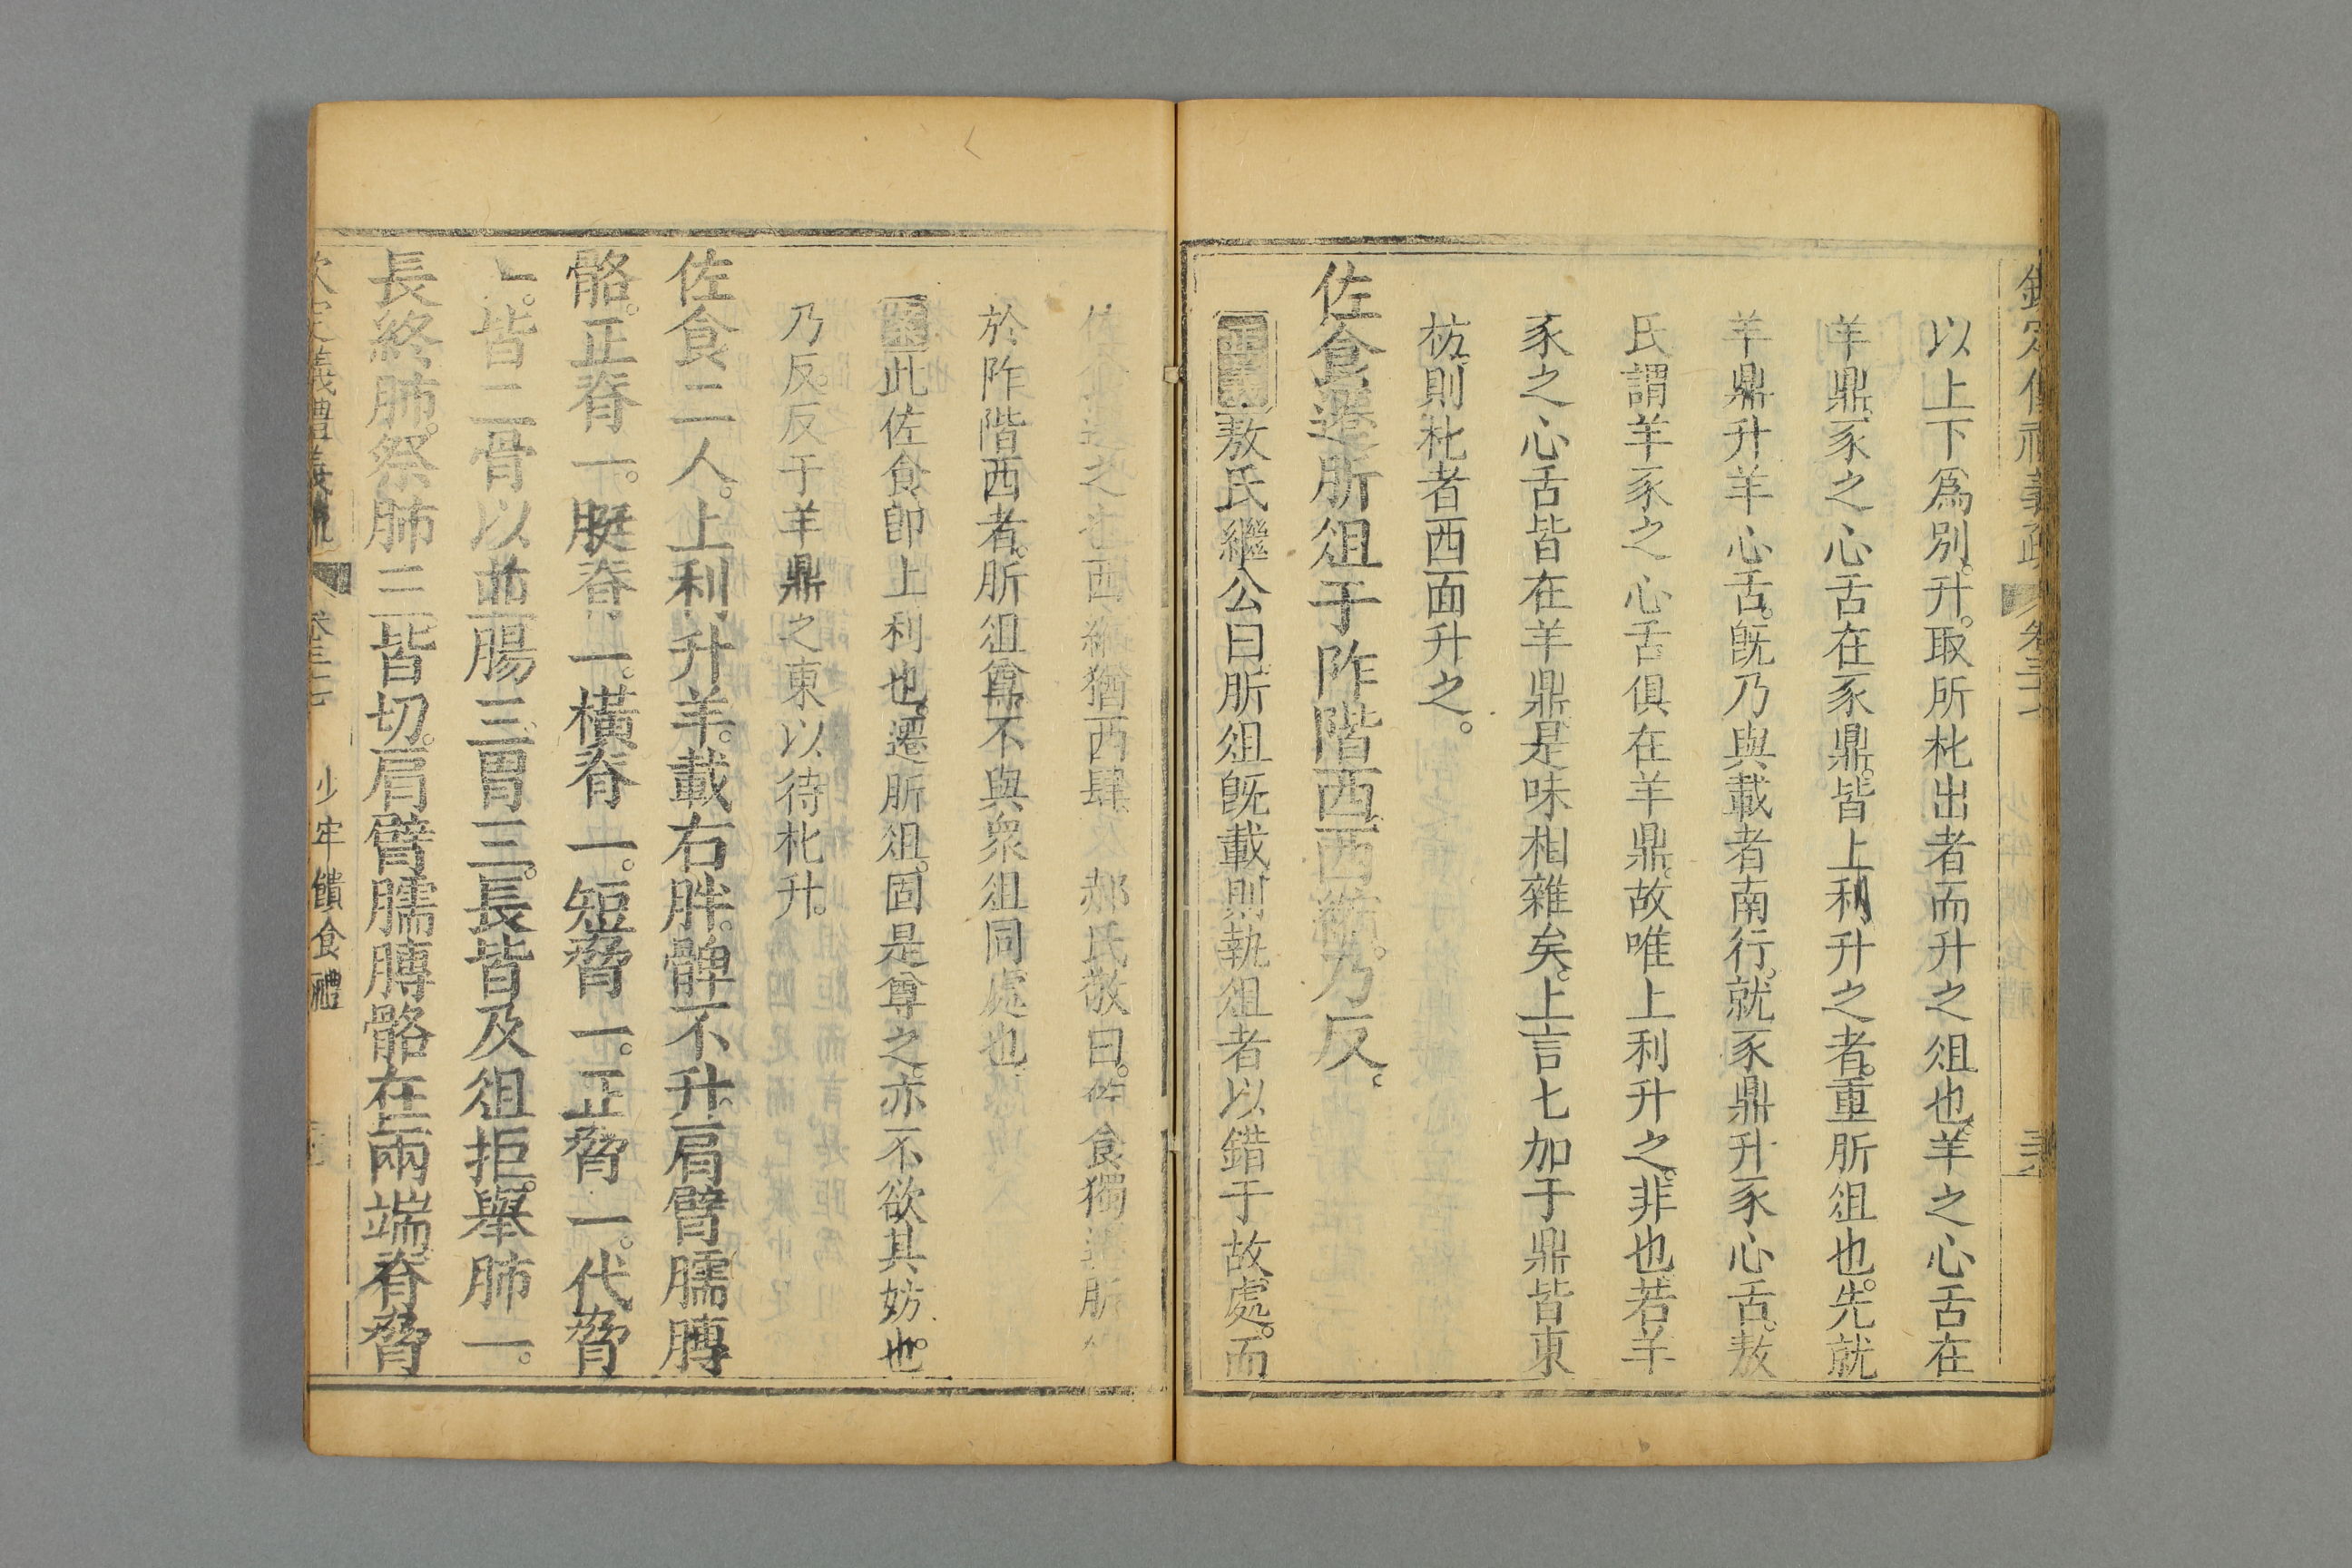 以上下爲別。升。取所朼出者而升之俎也。羊之心舌在
羊鼎。豕之心舌在豕鼎。皆上利升之者。重肵俎也。先就
羊鼎升羊心舌。旣乃與載者南行。就豕鼎升豕心舌。敖
氏謂羊豕之心舌俱在羊鼎。故唯上利升之。非也。若羊
豕之心舌皆在羊鼎。是味相雜矣。上言匕加于鼎皆東
枋。則朼者西面升之。
佐食遷肵俎于阼階西。西縮。乃反。
正義敖氏繼公曰。肵俎旣載。則執俎者以錯于故處。而
之也。西縮猶西肆。 郝氏敬曰。佐食獨遷肵
於阼階西者。肵俎尊。不與衆俎同處也。
案此佐食卽上利也。遷肵俎。固是尊之。亦不欲其妨也。
乃反。反于羊鼎之東以待朼升。
佐食二人。上利升羊。載右胖。髀不升。肩臂臑膊
骼。正脊一。脡脊一。橫脊一。短脅一。正脅一。代脅
一。皆二骨以並。腸三。胃三。長皆及俎拒。舉肺一。
長終肺。祭肺三。皆切。肩臂臑膊骼在兩端。脊脅
義禮義疏 卷三十七 少牢饋食禮